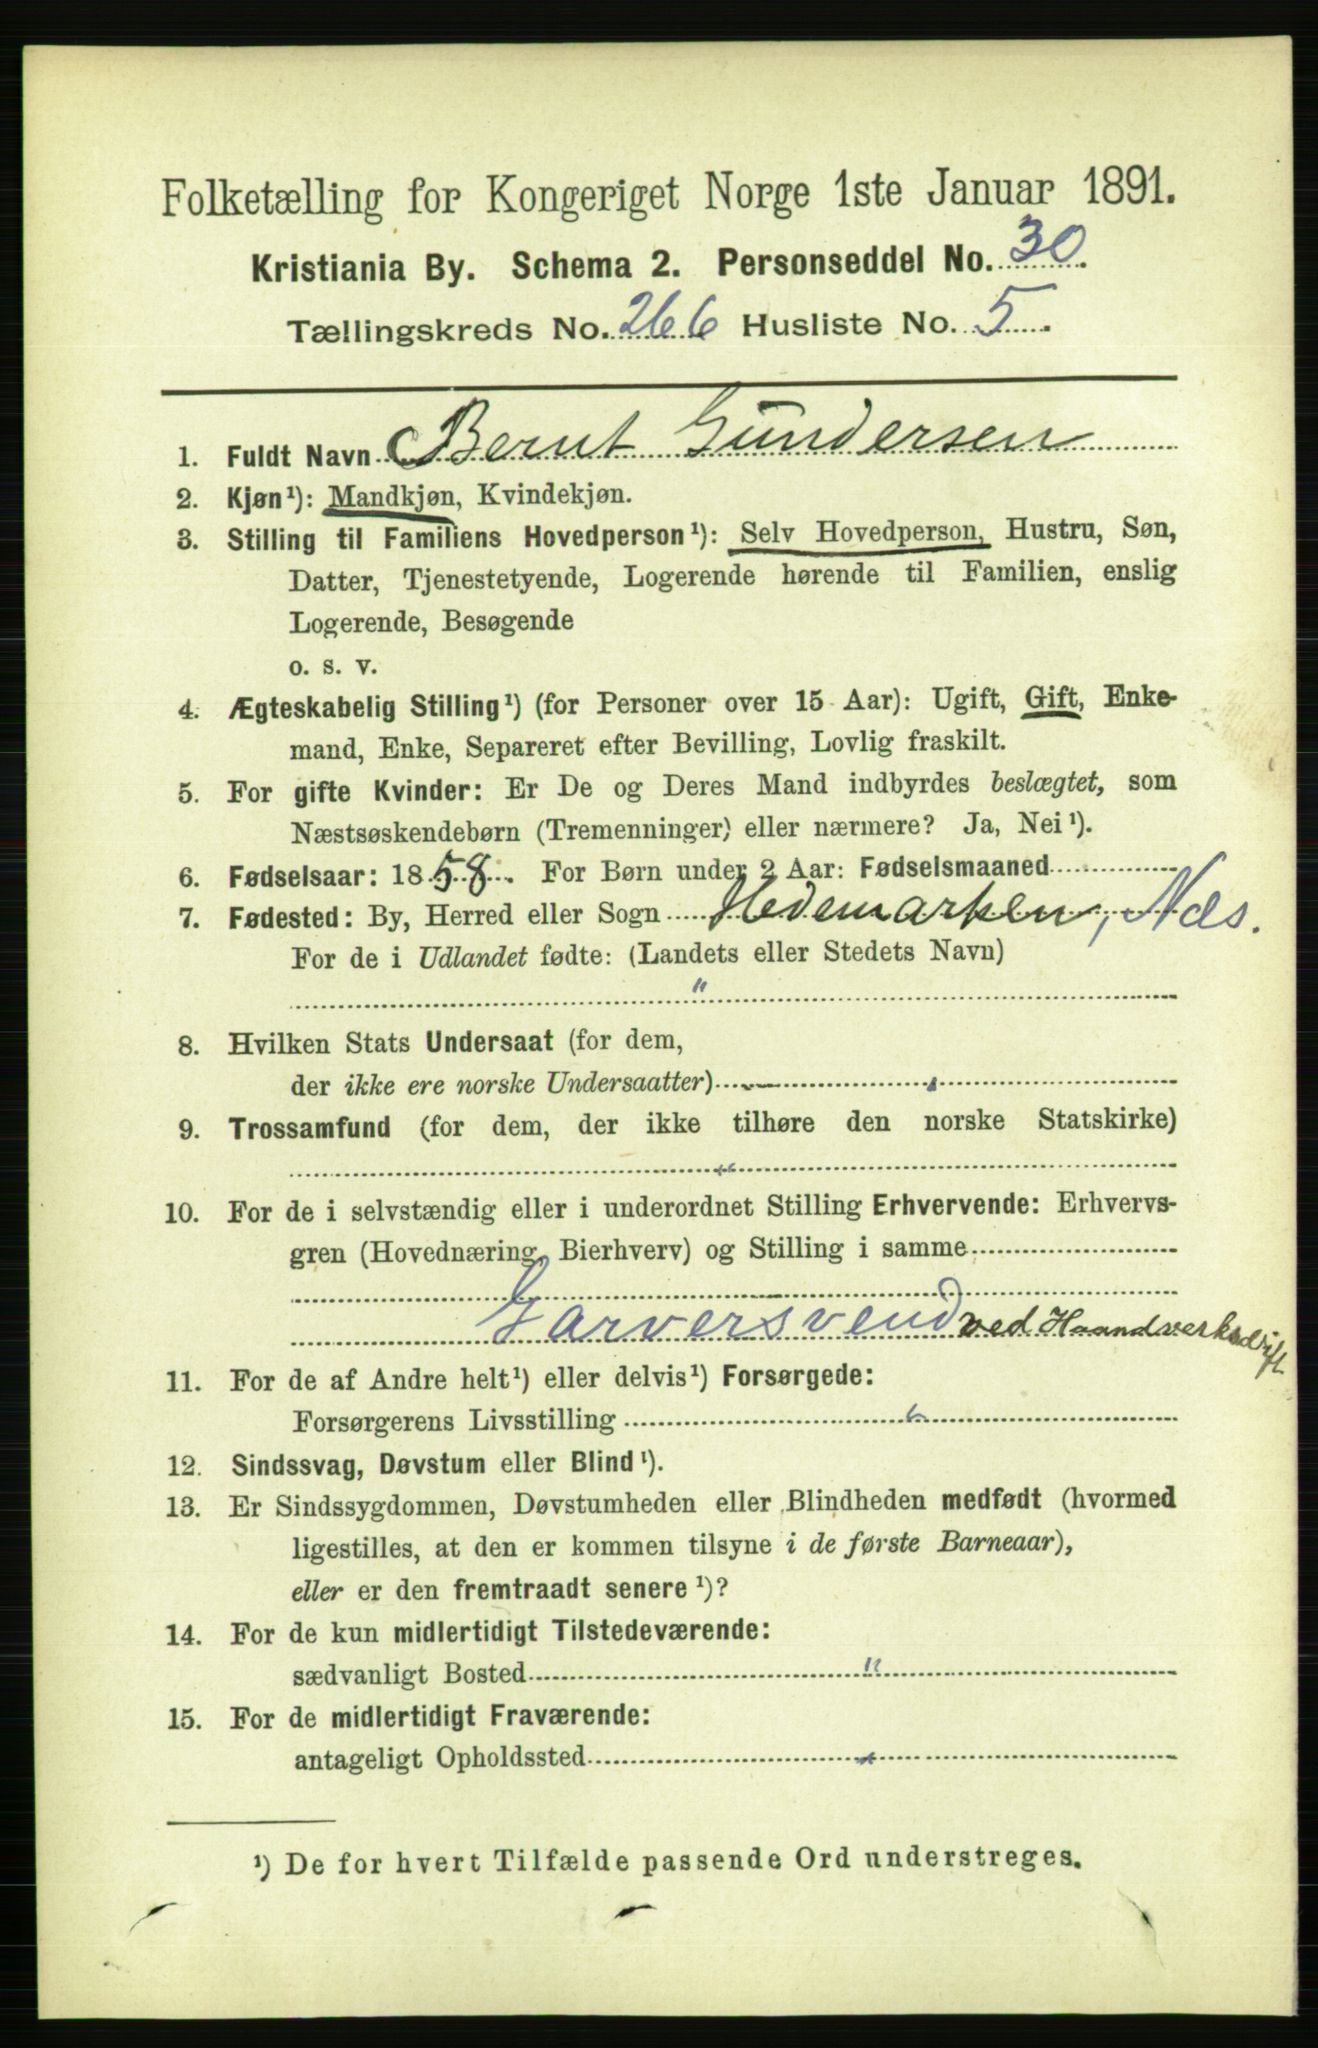 Folketælling for Kongeriget Norge 1ste Januar 1891.
Kristiania By. Schema 2. Personseddel No. 30.
Tællingskreds No. 266 Husliste No. 5.
1. Fuldt Navn Bernt Gundersen
2. Kjøn¹): Mandkjøn, Kvindekjøn.
3. Stilling til Familiens Hovedperson¹): Selv Hovedperson, Hustru, Søn,
Datter, Tjenestetyende, Logerende hørende til Familien, enslig
Logerende, Besøgende
o. s. v.
4. Ægteskabelig Stilling¹) (for Personer over 15 Aar): Ugift, Gift, Enke-
mand, Enke, Separeret efter Bevilling, Lovlig fraskilt.
5. For gifte Kvinder: Er De og Deres Mand indbyrdes beslægtet, som
Næstsøskendebørn (Tremenninger) eller nærmere? Ja, Nei¹).
6. Fødselsaar: 1858. For Børn under 2 Aar: Fødselsmaaned
7. Fødested: By, Herred eller Sogn Hedemarken, Næs.
For de i Udlandet fødte: (Landets eller Stedets Navn)
"
8. Hvilken Stats Undersaat (for dem,
der ikke ere norske Undersaatter)
9. Trossamfund (for dem, der ikke tilhøre den norske Statskirke)
"
10. For de i selvstændig eller i underordnet Stilling Erhvervende: Erhvervs-
gren (Hovednæring, Bierhverv) og Stilling i samme
Garversvend ved Haandverksdrift
11. For de af Andre helt¹) eller delvis¹) Forsørgede:
Forsørgerens Livsstilling "
12. Sindssvag, Døvstum eller Blind¹).
13. Er Sindssygdommen, Døvstumheden eller Blindheden medfødt (hvormed
ligestilles, at den er kommen tilsyne i de første Barneaar),
eller er den fremtraadt senere¹)?
14. For de kun midlertidigt Tilstedeværende:
sædvanligt Bosted "
15. For de midlertidigt Fraværende:
antageligt Opholdssted "
¹) De for hvert Tilfælde passende Ord understreges.